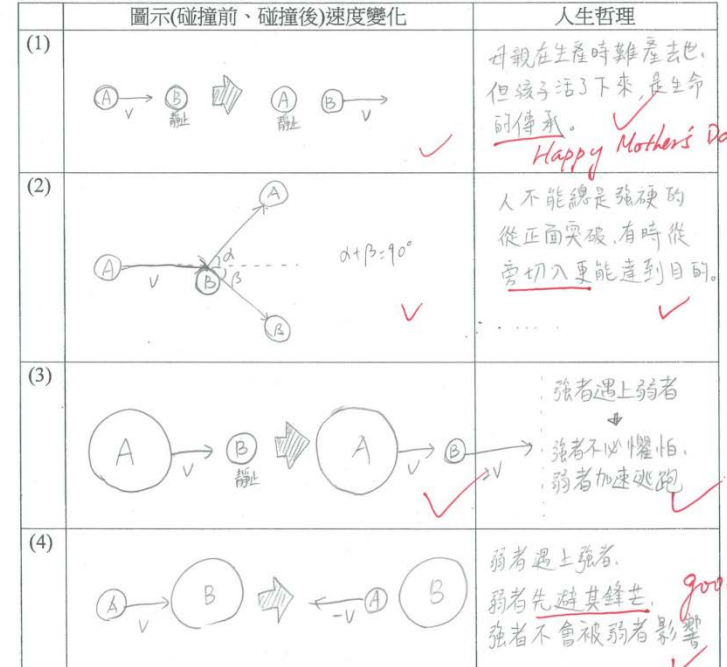 圖示(碰撞前、碰撞後)速度變化
人生哲理
(1)
A
V
B
靜止
A
靜止
B
V
母親在生產時難產去世,
但孩子活了下來,是生命
的傳承。
Happy Mother's Da
(2)
A
V
B
α
β
A
B
α+β=90°
人不能總是強硬的
從正面突破,有時從
旁切入更能達到目的。
(3)
A
V
B
靜止
A
V
B
V
強者遇上弱者
強者不必懼怕,
弱者加速逃跑
(4)
A
V
B
-V
A
B
弱者遇上強者,
弱者先避其鋒芒,
強者不會被弱者影響
goo